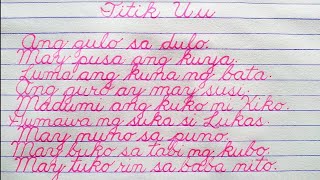 Titik Uu
Ang gulo sa dulo.
May pusa ang kuya.
Luma ang kuna ng bata.
Ang guro ay may susi.
Madumi ang kuko ni Kiko.
Gumawa ng suka si Lukas.
May numo sa puno.
May buko sa tabi ng kubo.
May tuko rin sa baba nito.